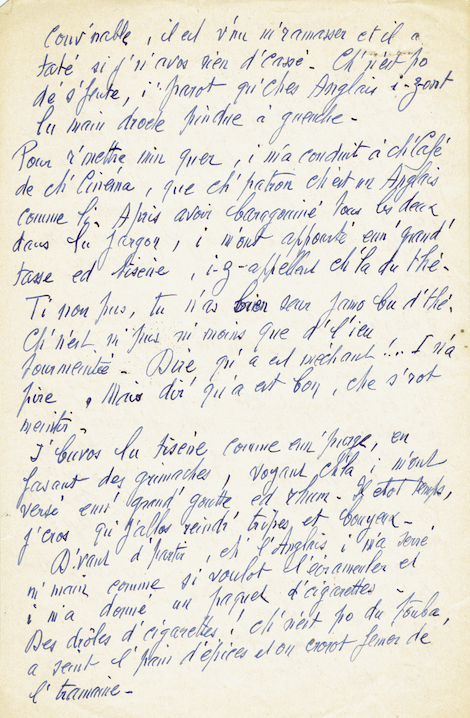 Couv'nable, il est v'nu m'ramasser et il a
taté si j'n'avos rien d'cassé - Ch'n'est po
dé s'feute, i' parot qu'ches Anglais i-z-ont
lu main droete pindue à gueuche -
Pour r'mettre min quer, i m'a conduit à ch'Café
de ch'Cinéma, que ch'patron ch'est un Anglais
comme li - Après avoir baragouiné tous les deux
dans lu jargon, i m'ont apporté eun'grand'
tasse ed tiseine, i-z-appellent ch'la du thé -
Ti non pus, tu n'as bien seur jamo bu d'thé -
Ch'n'est ni pus ni moins que d'l'ieu
tourmentée - Dire qu'a est méchant !... I n'a
pire, Mais dir' qu'a est bon, che s'rot
mentir -
J'buvos lu tiseine, comme eun'purge, en
fasant des grimaches, voyant ch'la i m'ont
versé eun'grand'goutte ed rhum - Il étot temps,
j'cros qu'j'allos reindr' tripes et bouyeux -
D'vant d'partir, ch'l'Anglais, i m'a serré
m'main comme si voulot l'écramenter et
i m'a donné un paquet d'cigarettes -
Des drôles d'cigarettes ! ch'n'est po du touba,
a seint l'pain d'épices et on crorot femer de
l'tramaine -